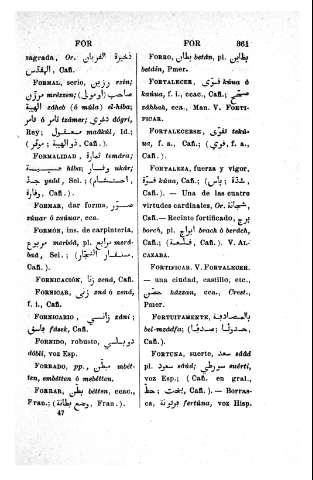 FOR
FOR
361
sagrada, Or. ذخيرة القربان
المقدّس, Cañ.
FORMAL, serio, رزين rzin;
مرزّن mrezzen; (صاحب
الهيبة záheb (ó múla) el-hiba;
Rey; معقول maâkúl, Id.;
Cañ.).
FORMALIDAD, ثمارة temára;
وقار uakár; هيبة
hiba;
جد yadd, Sel.;
وفارة, Cañ.).
FORMAR, dar forma, صوّر
sáuar ó zuáuar, cca.
FORMÓN, ins. de carpintería,
مربوع merbód, pl. مرابع
bad, Sel.;
Cañ.).
FORNICACIÓN, زنا zend, Cañ.
FORNICAR, زنى zná ó zend,
f. i., Cañ.
FORNICARIO, زاني záni;
فاسق fásek, Cañ.
FORNIDO, robusto, دوبلي
dóbli, voz Esp.
FORRADO, pp., مبطن mbét-
ten, embétten ó mebétten.
FORRAR, بطن bétten, ccac.,
Fran.; (وضع بطانة, Fran.).
47
FORRO, بطان betán, pl. بطاين
betáin, Pmer.
FORTALECER, قوّى káua ó
kaúua, f. i., ccac., Cañ.; صحّح
záhhah, cca., Man. V. FORTI-
FICAR.
FORTALECERSE, تقوّى tekáu-
ua, f. a., Cañ.; (قوي, f. a.,
Cañ.).
FORTALEZA, fuerza y vigor,
قوّة kúua, Cañ.; (بأس; شدّة,
Cañ.). — Una de las cuatro
virtudes cardinales, Or. شجاعة,
Cañ.—Recinto fortificado, برج
borch, pl. ابراج brach ó berdch,
Cañ.; (قلعة, Cañ.). V. AL-
CAZABA.
FORTIFICAR. V. FORTALECER.
— una ciudad, castillo, etc.,
حصّن házzan, cca., Crest.,
Pmer.
FORTUITAMENTE, بالمصادفة
bel-mzádfa; (صدفا; حدوثا,
Cañ.).
FORTUNA, suerte, سعد sáâd
pl. سعود sâúd; سورطي suérti,
voz Esp.; (Cañ. en gral.,
حظ; بخت, Cañ.). — Borras-
ca, فرتونة fertúna, voz Hisp.